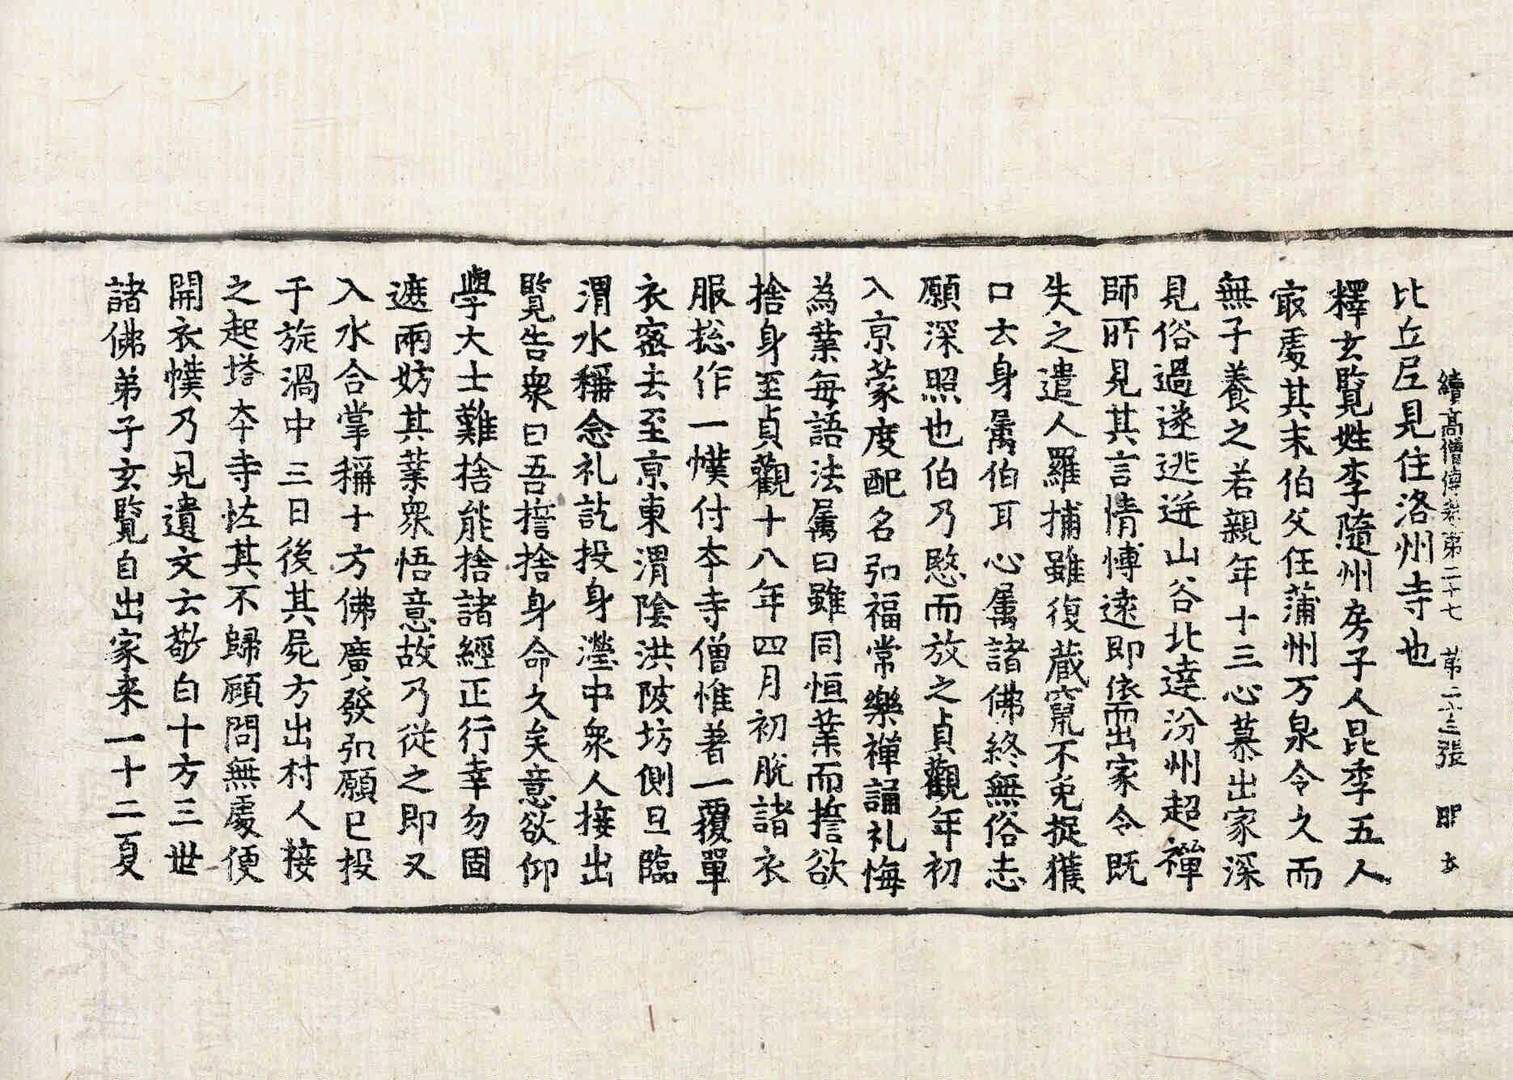 續高僧傳卷第二十七 第二十三張
比丘尼見住洛州寺也
釋玄覽姓李隨州房子人昆季五人
㝡處其末伯父任蒲州万泉令久而
無子養之若親年十三心慕出家深
見俗過遂逃迸山谷北達汾州超禪
師所見其言情愽遠即依而出家令既
失之遣人羅捕雖復藏竄不免捉獲
口云身屬伯耳心属諸佛終無俗志
願深照也伯乃愍而放之貞觀年初
入京蒙度配名弘福常樂禪誦礼悔
為業每語法属曰雖同恒業而誓欲
捨身至貞觀十八年四月初脫諸衣
服惣作一幞付本寺僧惟著一覆單
衣密去至京東渭陰洪陂坊側旦臨
渭水稱念礼訖投身瀅中衆人接出
覽告衆曰吾誓捨身命久矣意欲仰
學大士難捨能捨諸經正行幸勿固
遮兩妨其業衆悟意故乃從之即又
入水合掌稱十方佛廣發弘願已投
于旋渦中三日後其屍方出村人接
之起塔本寺恠其不歸顧問無處便
開衣幞乃見遺文云敬白十方三世
諸佛弟子玄覽自出家来一十二夏